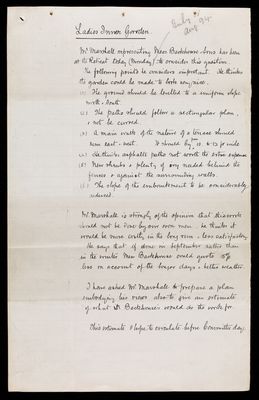 Ladies Inner Garden
Mr. Marshall representing Messrs Backhouse & Sons has been
at the Retreat today (Monday) to consider this question.
The following points he considers important. He thinks
the garden could be made to look very nice.
(1) The ground should be levelled to a uniform slope
north & south.
(2) The paths should follow a rectangular plan,
& not be curved.
(3) A main walk of the nature of a terrace should
run east & west. It should be 10 to 12 ft wide
(4) He thinks asphalte paths not worth the extra expense
(5) New shrubs & plenty of ivy needed behind the
fences & against the surrounding walls.
(6) The slope of the embankment to be considerably
reduced.
Mr. Marshall is strongly of the opinion that this work
should not be done by our own men. he thinks it
would be more costly in the long run & less satisfactory.
He says that if done in September rather than
in the winter Messrs Backhouse would quote 5%
less on account of the longer days & better weather.
I have asked Mr Marshall to prepare a plan
embodying his views also to give an estimate
of what Messrs Backhouse would do the work for
This estimate I hope to circulate before Committee day.